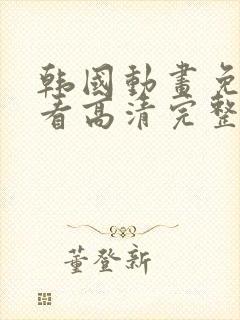 韩國動畫免
看高清完整
董登新